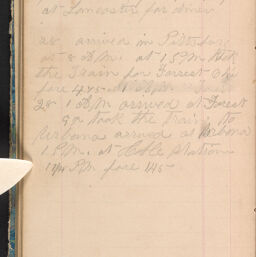 at Lancaster for diner
28 arrived in Pittsburg
at 8 A.M. at 1 P.M. took
the Train for Forrest Oh
fare 4.45
28 1 A.M arrived at Forest
took the Train to
Urbana arrived at Urbana
1 P.M. at Cable Station
P.M fare 145